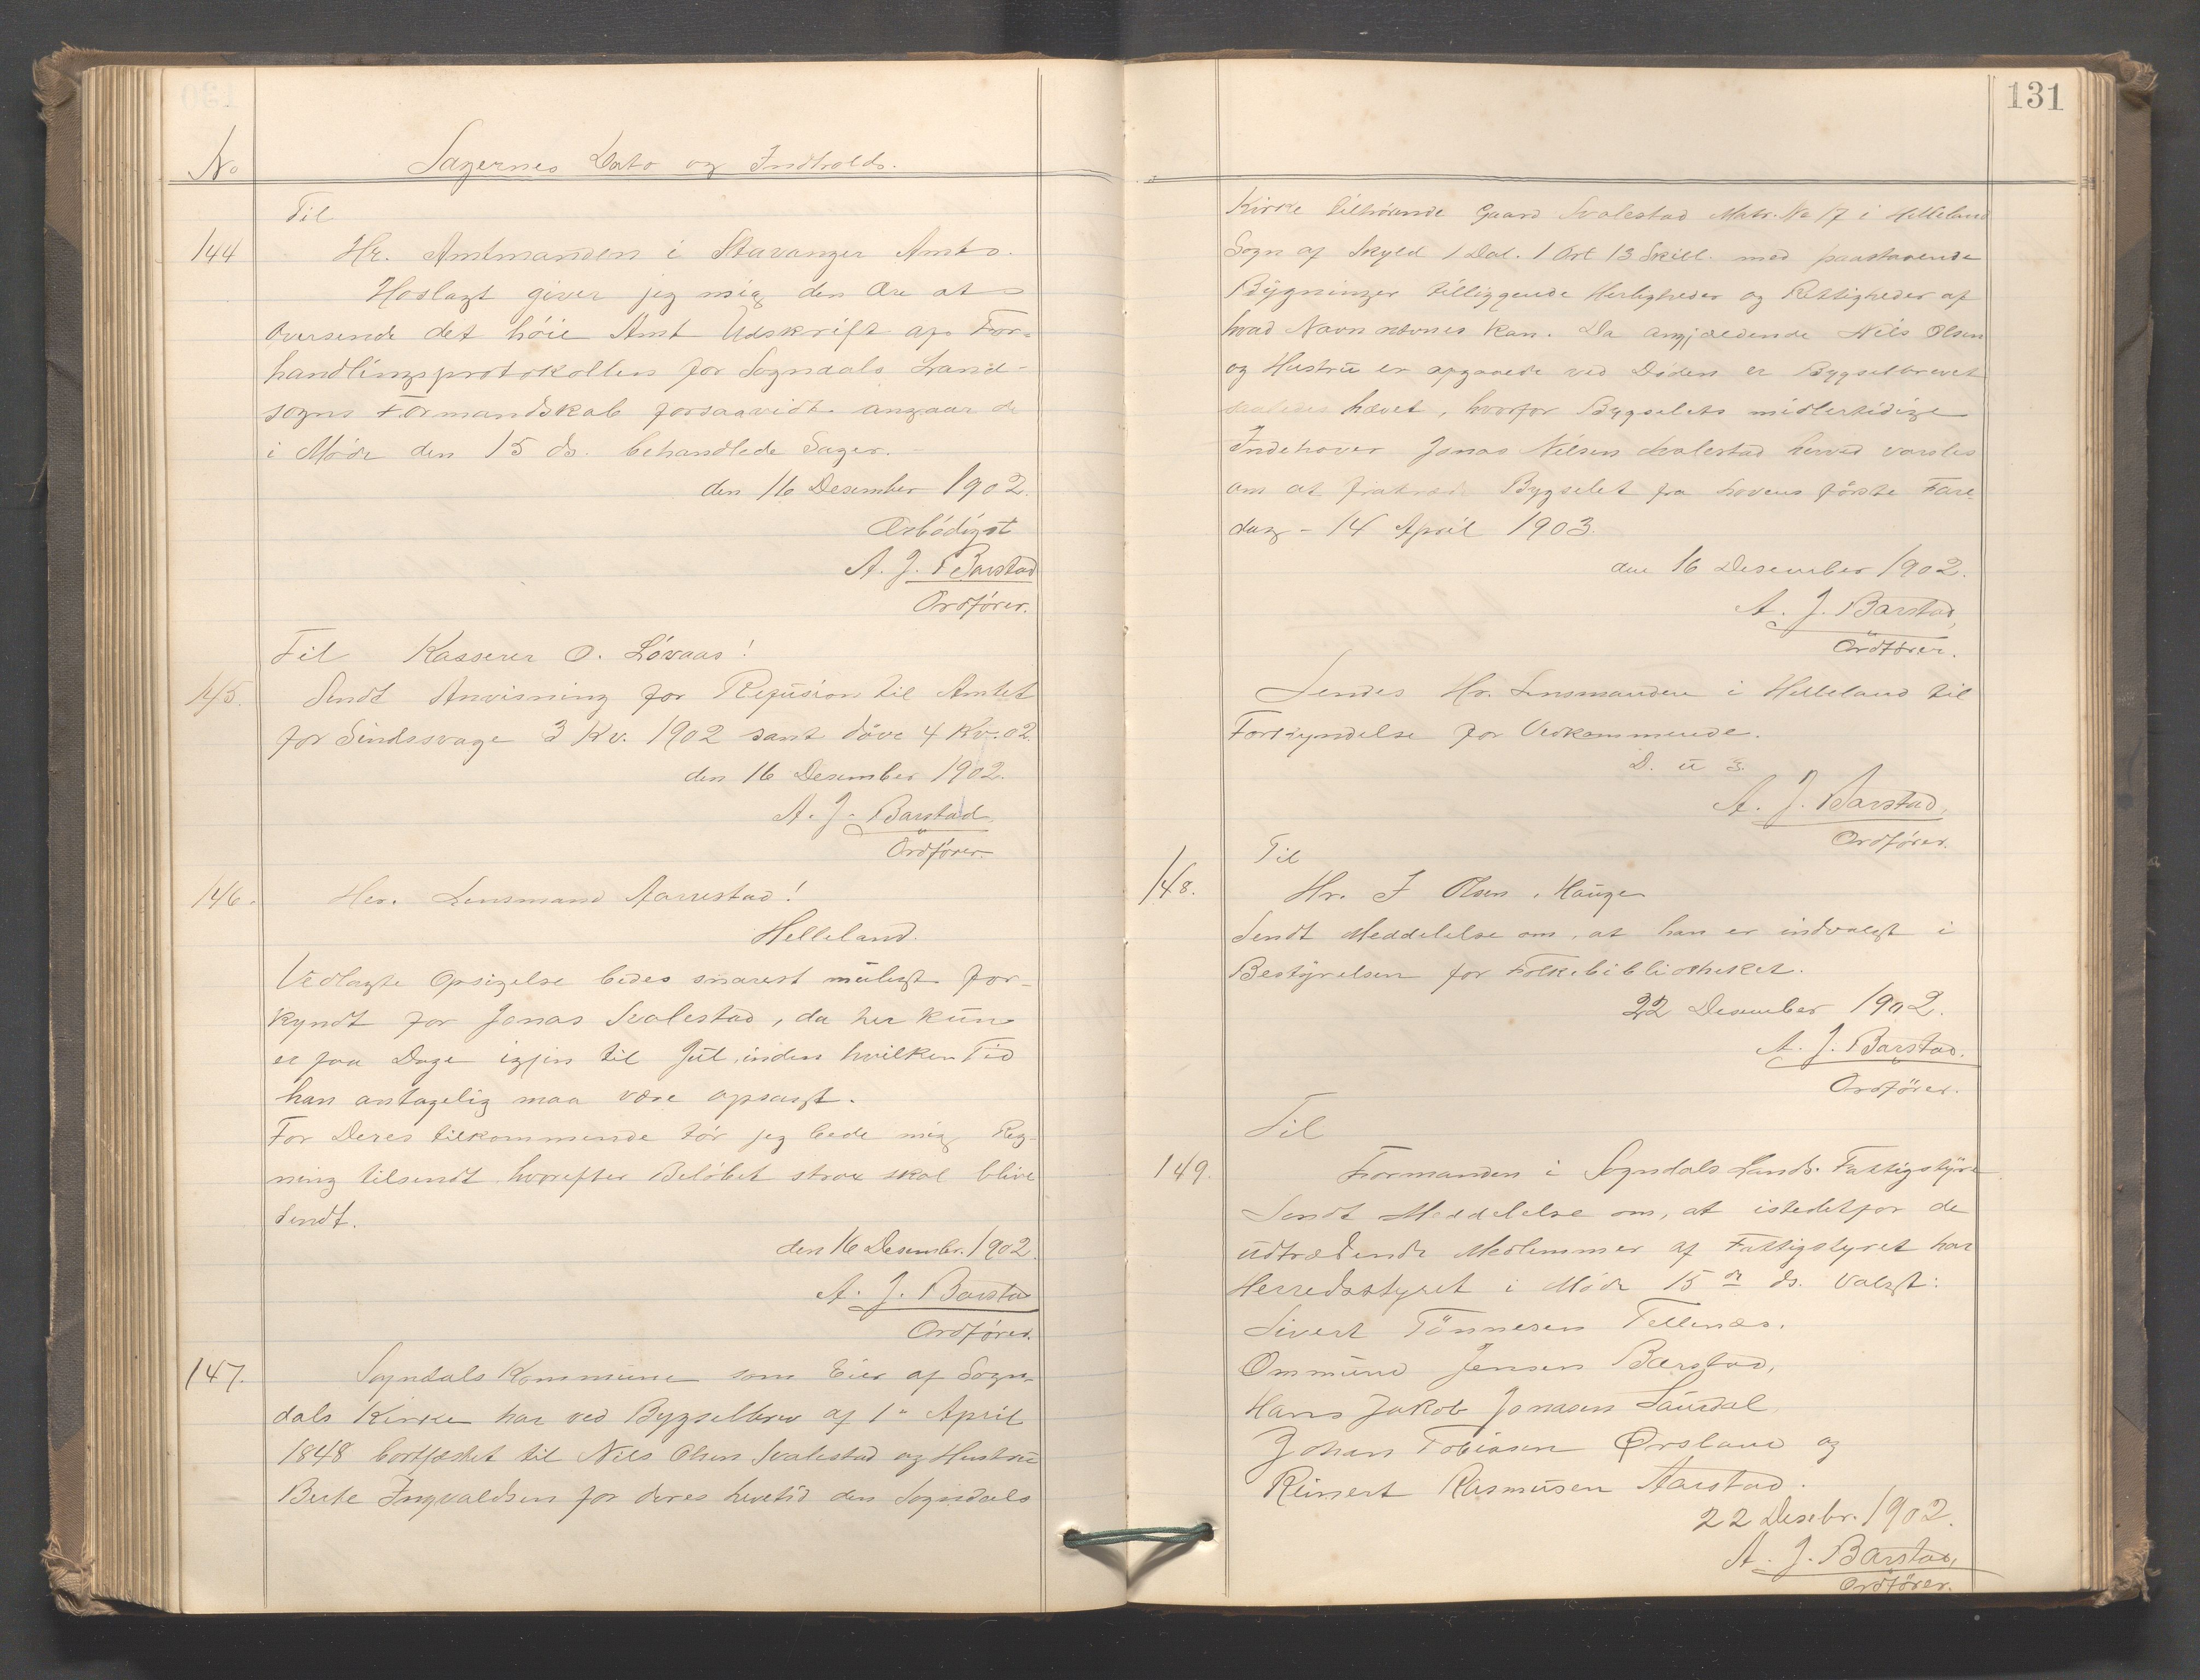 No
Sagernes Dato og Indhold.
Til
144 Hr. Amtmanden i Stavanger Amt.
Hoslagt giver jeg mig den Ære at
oversende det höie Amt Udskrift af For-
handlingsprotokollen for Sogndals Land-
sogns Formandskab forsaavidt angaar de
i Møde den 15 ds. behandlede Sager.
den 16 Desember 1902.
Ærbödigst
A. J. Barstad
Ordförer.
Til Kasserer O. Lövaas!
145. Sendt Anvisning for Refusion til Amtet
for Sindssvage 3 Kv. 1902 samt döve 4 Kv. 02.
den 16 Desember 1902.
A. J. Barstad
Ordförer.
146. Her. Lensmand Aarrestad!
Helleland.
Vedlagte Opsigelse bedes snarest muligt for-
kyndt for Jonas Svalestad, da her kun
er faa Dage igjen til Jul, inden hvilken Tid
han antagelig maa være opsagt.
For Deres tilkommende tör jeg bede mig Reg-
ning tilsendt hvorefter Belöbet strax skal blive
sendt.
den 16 Desembr. 1902.
A. J. Barstad
Ordförer.
147. Sogndals Kommune som Eier af Sogn-
dals Kirke har ved Bygselbrev af 1 April
1848 bortfæstet til Nils Olsen Svalestad og Hustru
Berte Ingvaldsen for deres Levetid den Sogndals
131
Kirke tilhörende Gaard Svalestad Matr. No 17 i Helleland
Sogn af Skyld 1 Dal. 1 Ort 13 Skill. med paastaaende
Bygninger tilliggende Herligheder og Rettigheder af
hvad Navn nævnes kan. Da angjældende Nils Olsen
og Hustru er afgaaede ved Döden er Bygselbrevet
saaledes hævet, hvorfor Bygselets midlertidige
Indehaver Jonas Nilsen Svalestad herved varsles
om at fratræde Bygselet fra Lovens förste Fare-
dag - 14 April 1903.
den 16 Desember 1902.
A. J. Barstad,
Ordförer.
Sendes Hr. Lensmanden i Helleland til
Forkyndelse for Vedkommende.
D. u s.
A. J. Barstad,
Ordförer.
Til
148. Hr. J Olsen, Hauge
Sendt Meddelelse om, at han er indvalgt i
Bestyrelsen for Folkebibliotheket.
22 Desember 1902.
A. J. Barstad.
Ordförer.
Til
149. Formanden i Sogndals Lands. Fattigstyre
Sendt Meddelelse om, at istedetfor de
udtrædende Medlemmer af Fattigstyret har
Herredsstyret i Möde 15 de ds. valgt:
Sivert Tönnesen Tellenæs.
Ommund Jensen Barstad,
Hans Jakob Jonasen Saurdal
Johan Tobiasen Ørsland og
Reinert Rasmusen Aarstad.
22 Desebr. 1902.
A. J. Barstad,
Ordförer.